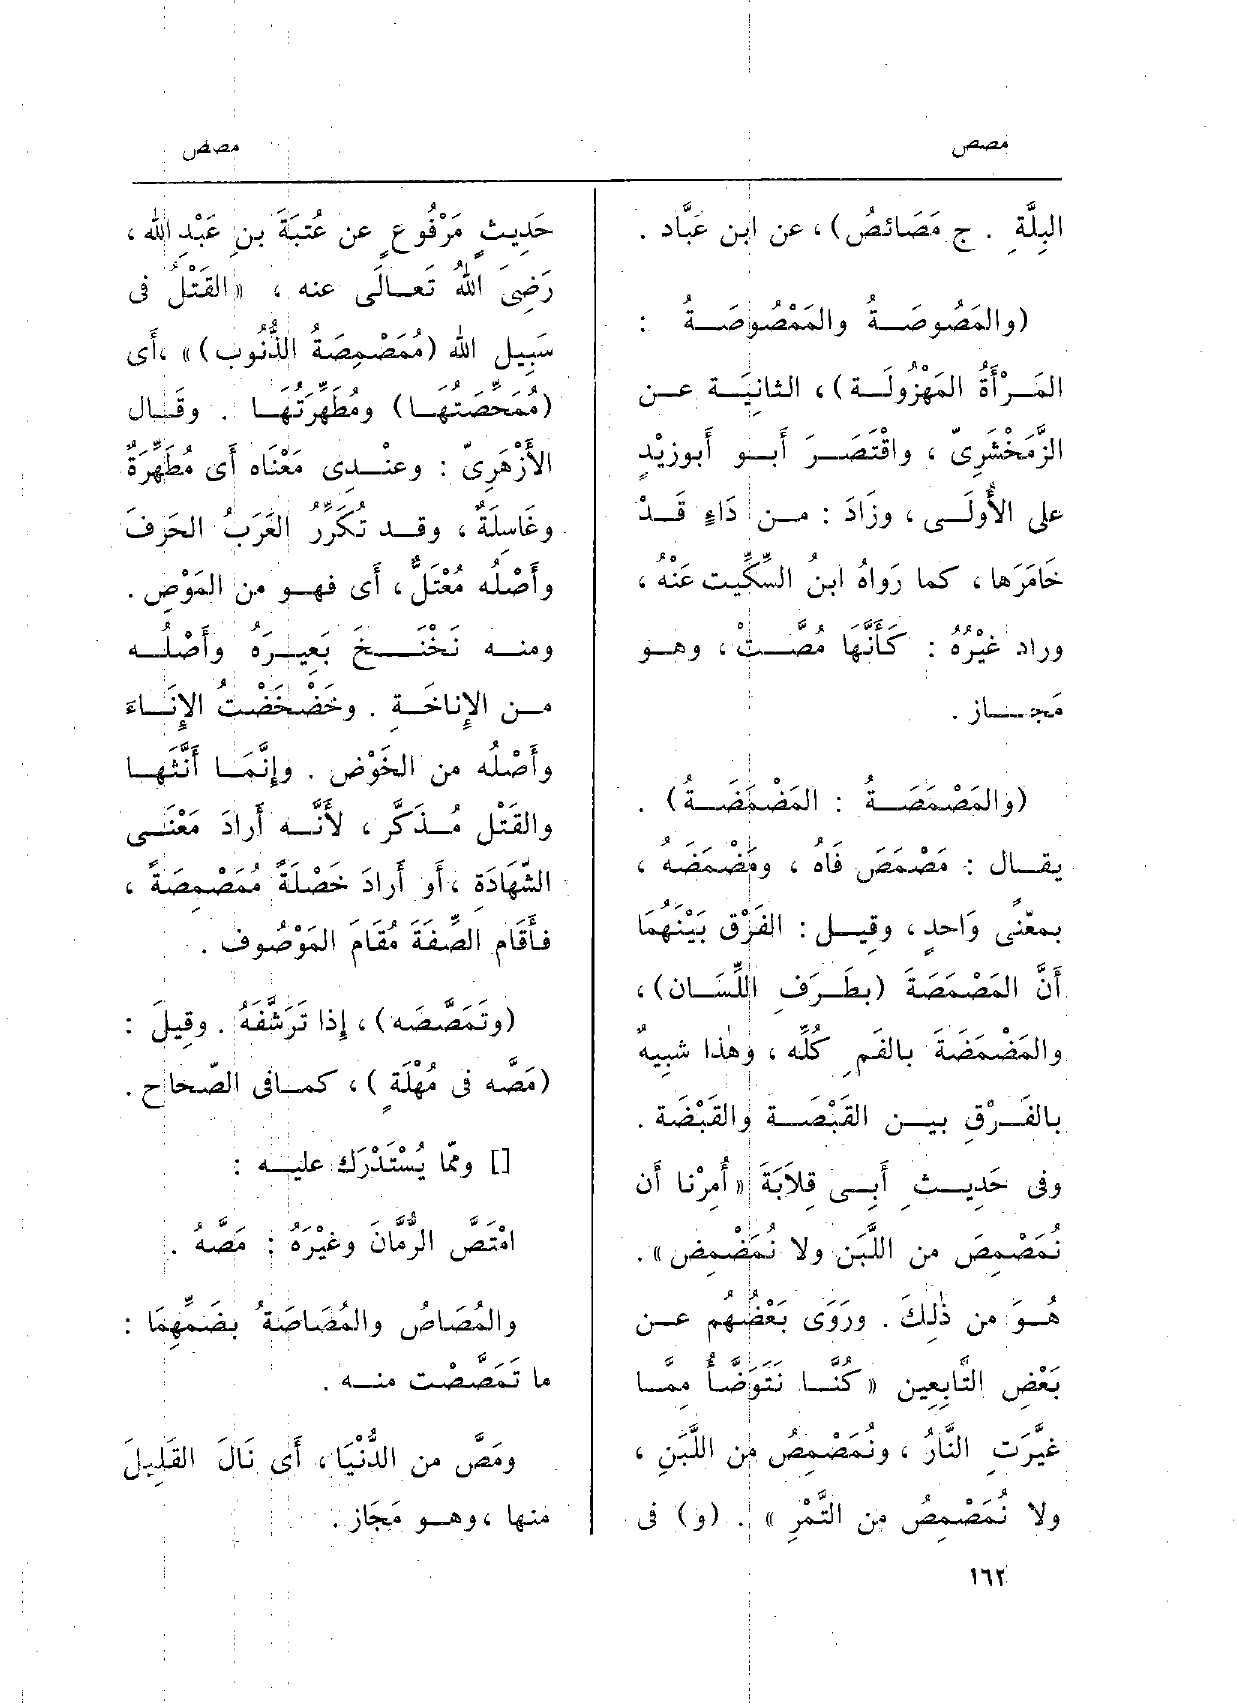 مصص
مصص
البِلَّةِ . ج مَصَائصُ) ، عن ابن عَبَّاد .
(والمَصُوصَةُ والمَمْصُوصَةُ :
المَرْأَةُ المَهْزُولَة) ، الثانيَة عن
الزَّمَخْشَرِىّ ، واقْتَصَرَ أَبو أَبوزيْدٍ
على الأُولَى ، وزَادَ : من دَاءٍ قَدْ
خَامَرَها ، كما رَواهُ ابنُ السِّكِّيت عَنْهُ ،
وراد غيْرُهُ : كَأَنَّهَا مُصَّتْ ، وهو
مَجاز .
(والمَصْمَصَةُ : المَضْمَضَةُ) .
يقال : مَصْمَصَ فَاه ، ومَضْمَضَه ،
بمعْنًى وَاحدٍ ، وقِيل : الفَرْق بَيْنَهُمَا
أَنَّ المَصْمَصَةَ (بطَرَفِ اللِّسَان) ،
والمَضْمَضَةَ بالفَمِ كُلِّه ، وهٰذا شبيهٌ
بالفَرْقِ بين القَبْصَة والقَبْضَة .
وفى حَدِيثِ أَبِى قِلاَبَةَ «أُمِرْنا أَن
نُمَصْمِصَ من اللَّبَنِ ولا نُمَضْمِض» .
هُوَ من ذٰلكَ . ورَوَى بَعْضُهم عن
بَعْضِ التَّابِعِين «كُنَّا نَتَوَضَّأُ مِمَّا
غيَّرَتِ النَّارُ ، ونُمَصْمِصُ من اللَّبَنِ ،
ولا نُمَصْمِصُ من التَّمْرِ » . (و) فى
حَدِيثٍ مَرْفُوعٍ عن عُتبَةَ بنِ عَبْدِ الله ،
رَضِىَ اللهُ تَعالَى عنه ، «القَتْلُ فى
سَبِيل الله (مُمَصْمِصَةُ الذُّنُوب)» ،أَى
(مُمَحِّصَتُها) ومُطَهِّرَتُهَا . وقال
الأَزْهَرِىّ : وعنْدِى مَعْنَاه أَى مُطَهِّرَةٌ
وغَاسلَةٌ ، وقد تُكَرِّرُ العَرَبُ الحَرفَ
وأَصْلُه مُعْتَلٌّ ، أَى فهو من المَوْصِ .
ومنه نَخْنَخَ بَعِيرَهُ وأَصْلُه
من الإِناخَةِ . وخَضْخَضْتُ الإِنَاءَ
وأَصْلُه من الخَوْض . وإِنَّمَا أَنَّثَها
والقَتْلُ مُذَكَّر ، لأَنَّه أَرادَ مَعْنَى
الشَّهَادَةِ ،أَو أَرادَ خَصْلَةً مُمَصْمِصَةً ،
فأَقَام الصِّفَةَ مُقَامَ المَوْصُوف .
(وتَمَصَّصَه) ، إِذا تَرَشَّفَهُ . وقِيلَ :
(مَصَّه فى مُهْلَةٍ ) ، كمافى الصّحاح .
[] وممّا يُسْتَدْرَك عليه :
امْتَصَّ الرُّمَّانَ وغيْرَهُ : مَصَّهُ .
والمُصَاصُ والمُصَاصَةُ بضَمِّهِمَا :
ما تَمَصَّصْت منه .
ومَصَّ من الدُّنْيَا ، أَى نَالَ القَلِيلَ
منها ،وهو مَجَاز .
١٦٢